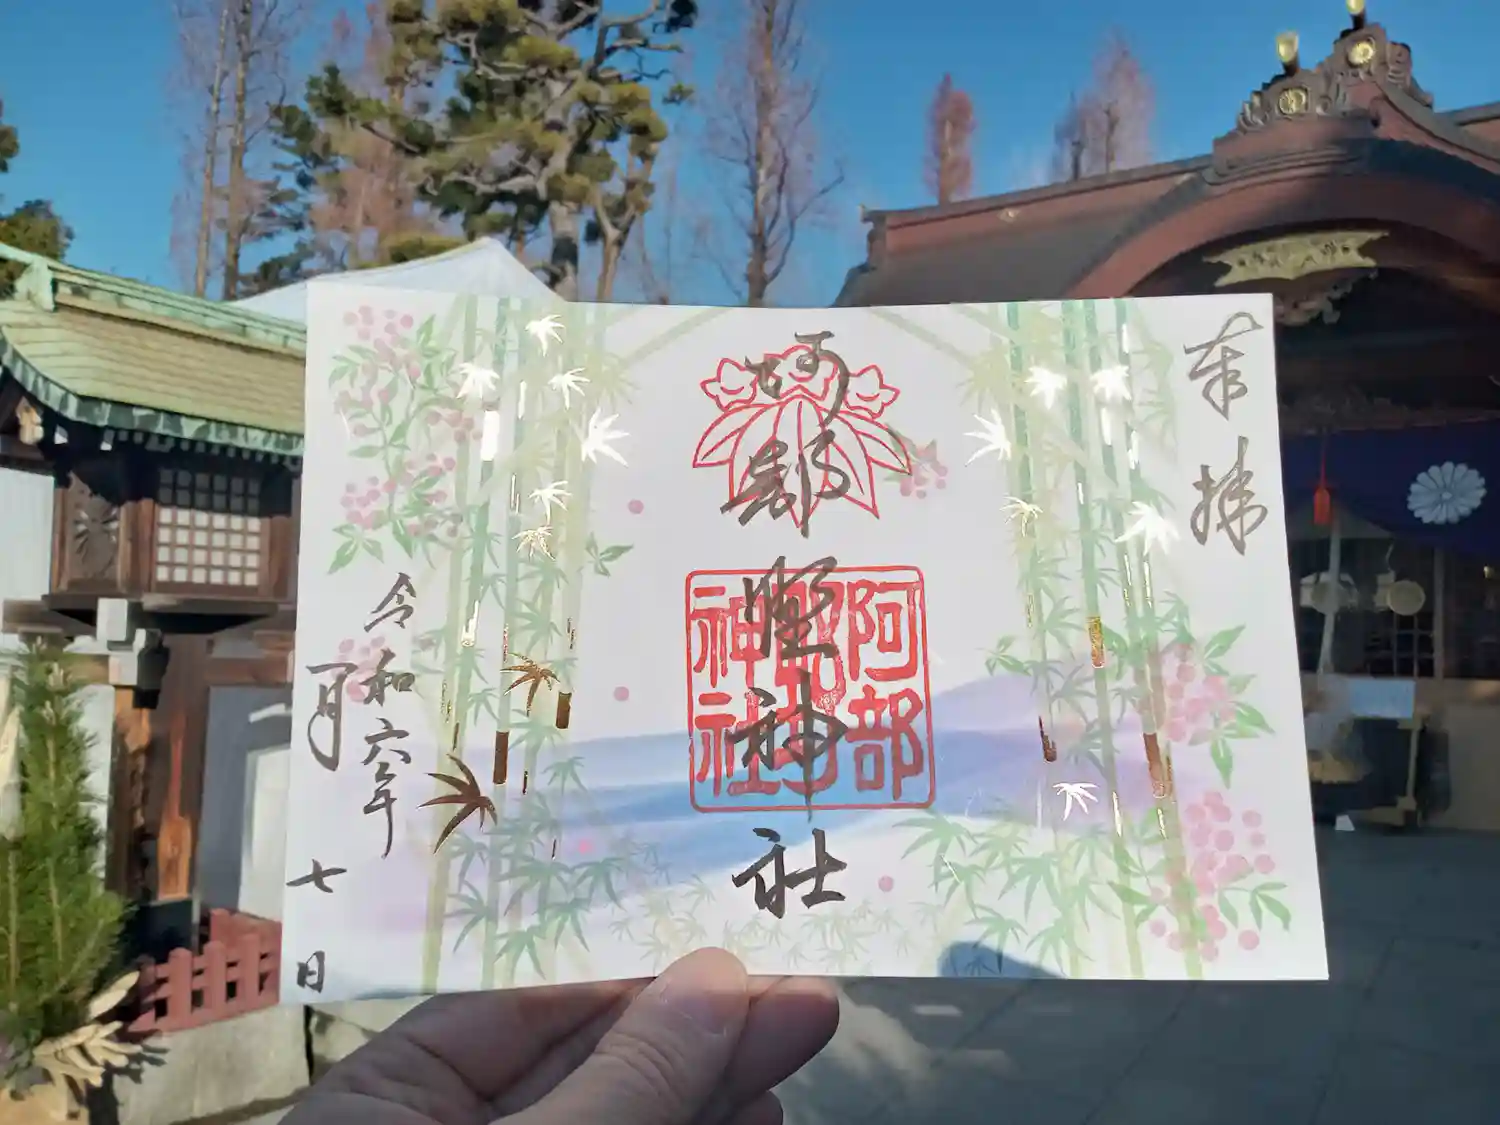 奉拝
阿部野神社
阿部野神社
令和六年
一月
七日